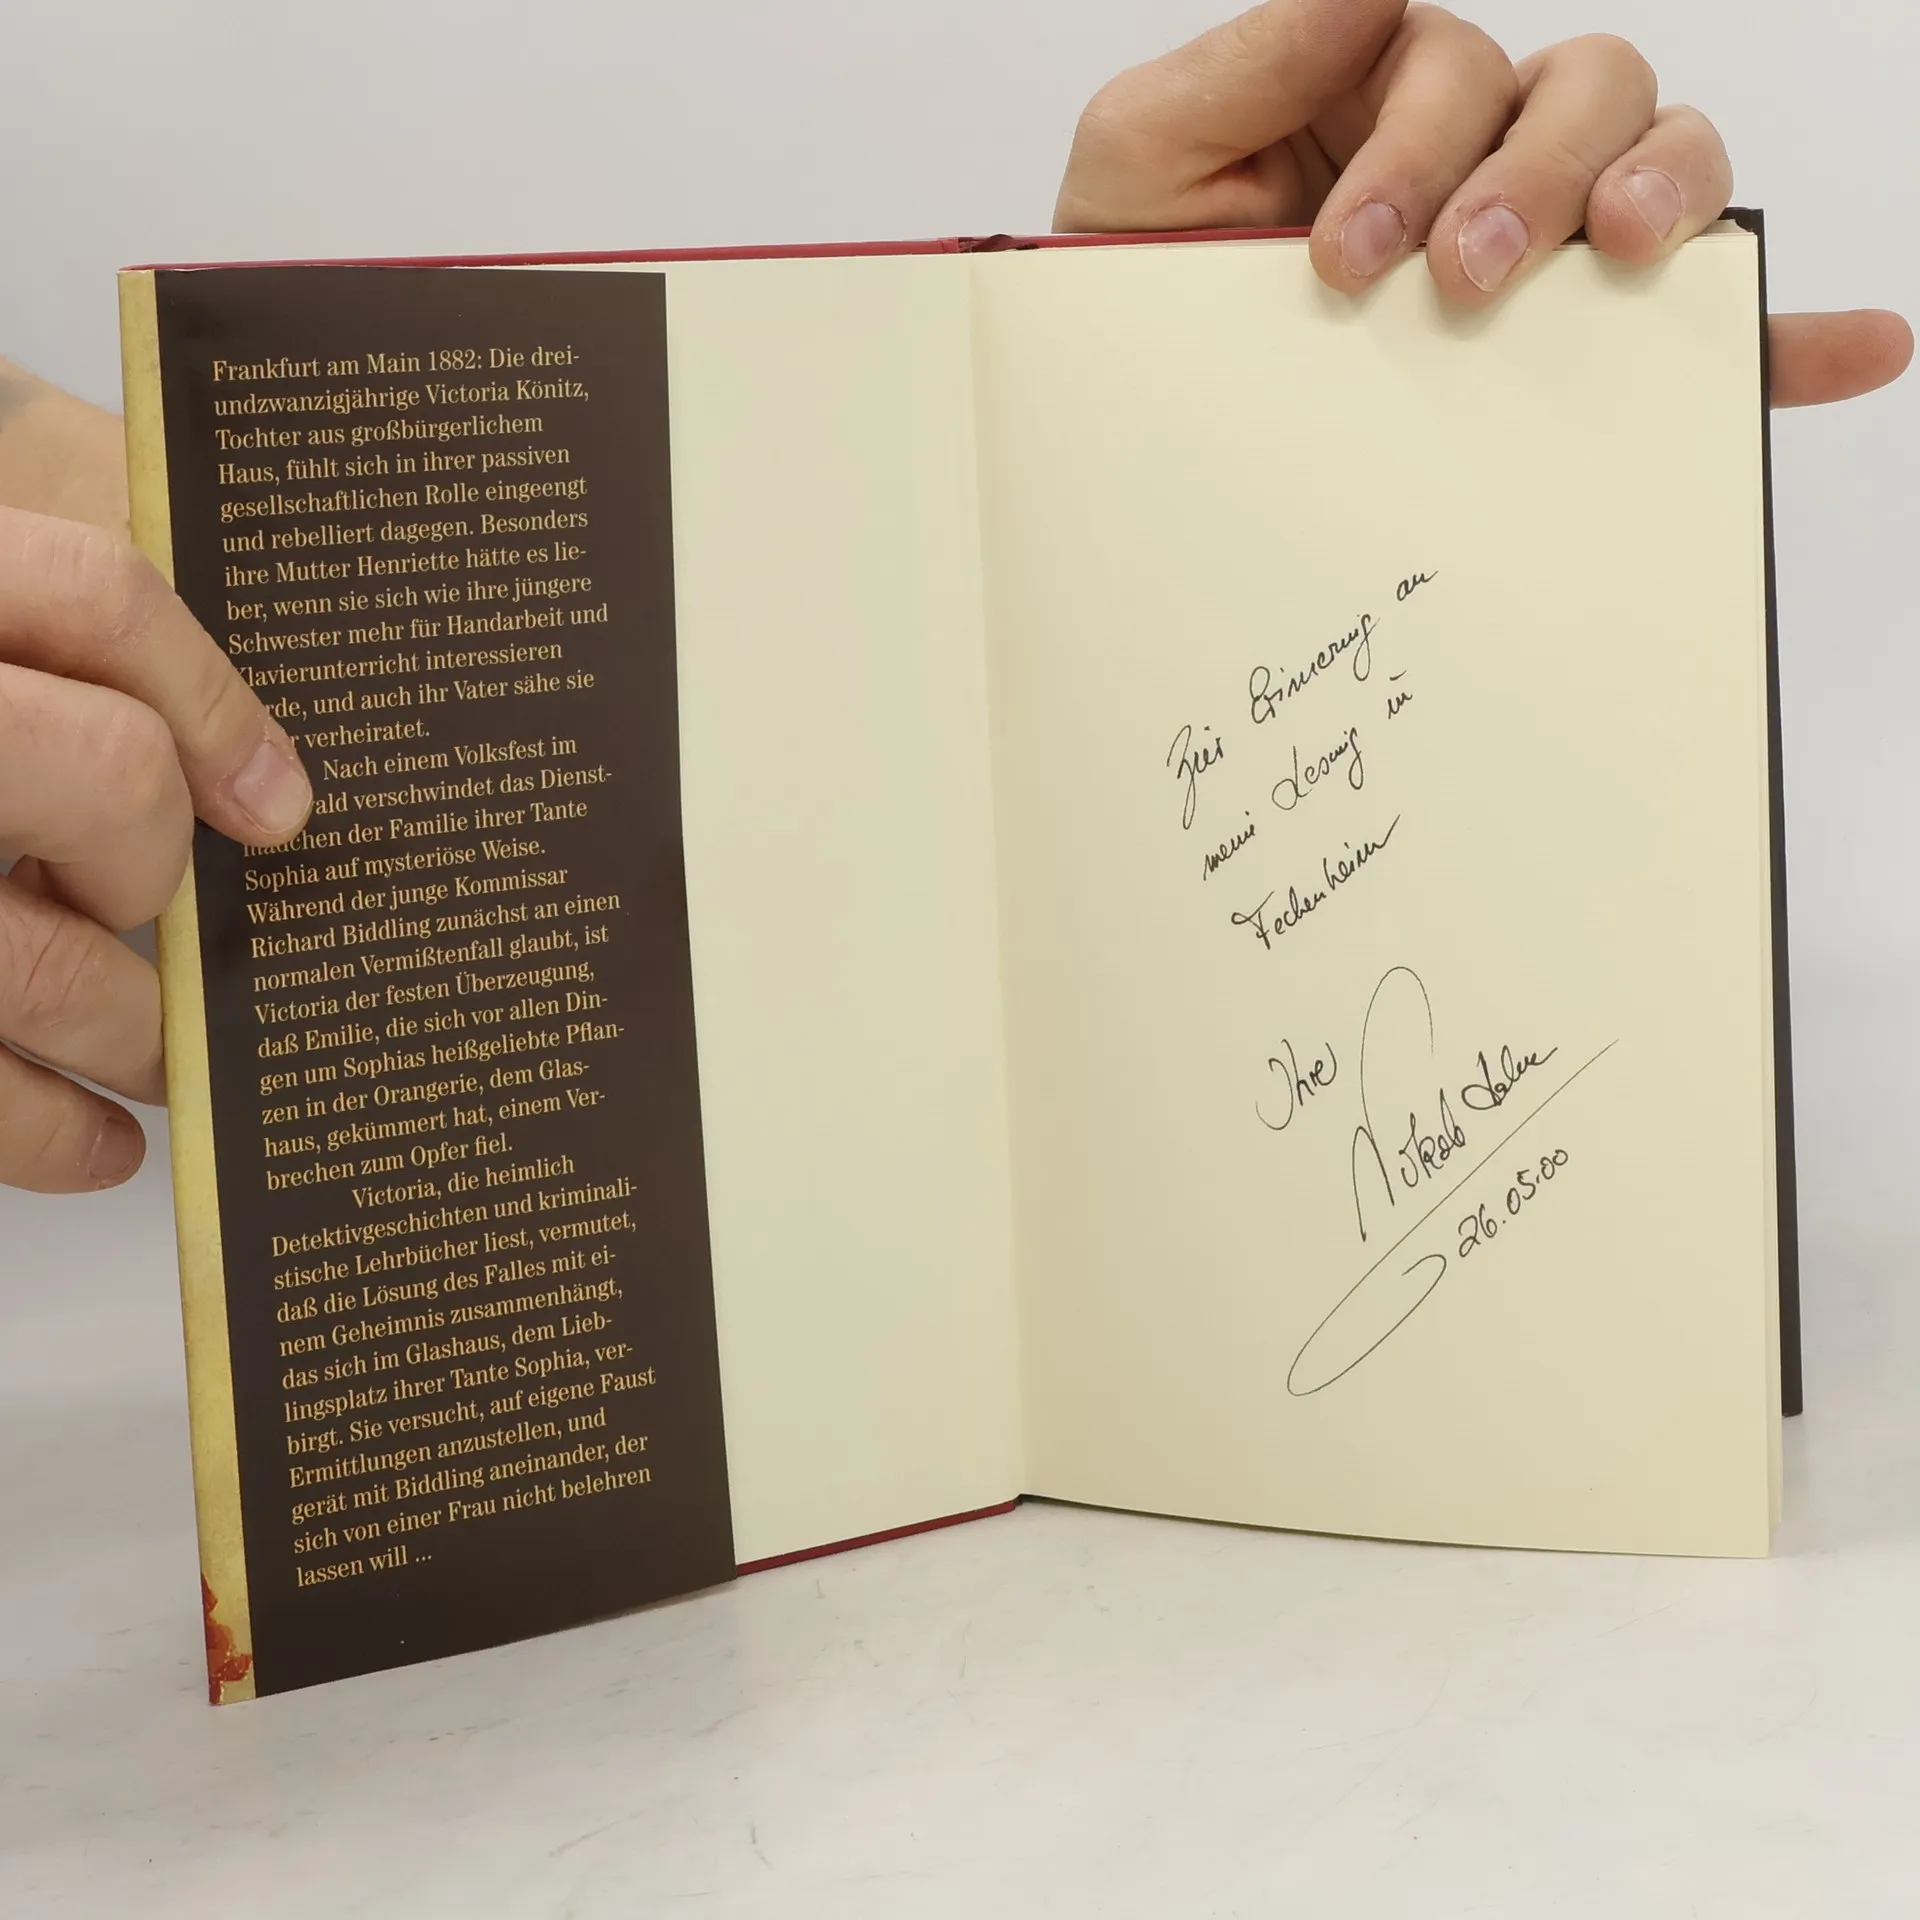 Frankfurt am Main 1882: Die drei-
undzwanzigjährige Victoria Könitz,
Tochter aus großbürgerlichem
Haus, fühlt sich in ihrer passiven
gesellschaftlichen Rolle eingeengt
und rebelliert dagegen. Besonders
ihre Mutter Henriette hätte es lie-
ber, wenn sie sich wie ihre jüngere
Schwester mehr für Handarbeit und
Klavierunterricht interessieren
rde, und auch ihr Vater sähe sie
r verheiratet.
Nach einem Volksfest im
ald verschwindet das Dienst-
mädchen der Familie ihrer Tante
Sophia auf mysteriöse Weise.
Während der junge Kommissar
Richard Biddling zunächst an einen
normalen Vermißtenfall glaubt, ist
Victoria der festen Überzeugung,
daß Emilie, die sich vor allen Din-
gen um Sophias heißgeliebte Pflan-
zen in der Orangerie, dem Glas-
haus, gekümmert hat, einem Ver-
brechen zum Opfer fiel.
Victoria, die heimlich
Detektivgeschichten und kriminali-
stische Lehrbücher liest, vermutet,
daß die Lösung des Falles mit ei-
nem Geheimnis zusammenhängt,
das sich im Glashaus, dem Lieb-
lingsplatz ihrer Tante Sophia, ver-
birgt. Sie versucht, auf eigene Faust
Ermittlungen anzustellen, und
gerät mit Biddling aneinander, der
sich von einer Frau nicht belehren
lassen will ...
Zur Erinnerung an
meine Lesung in
Fechenheim
Ihre
Nikola Hahn
26.05.00